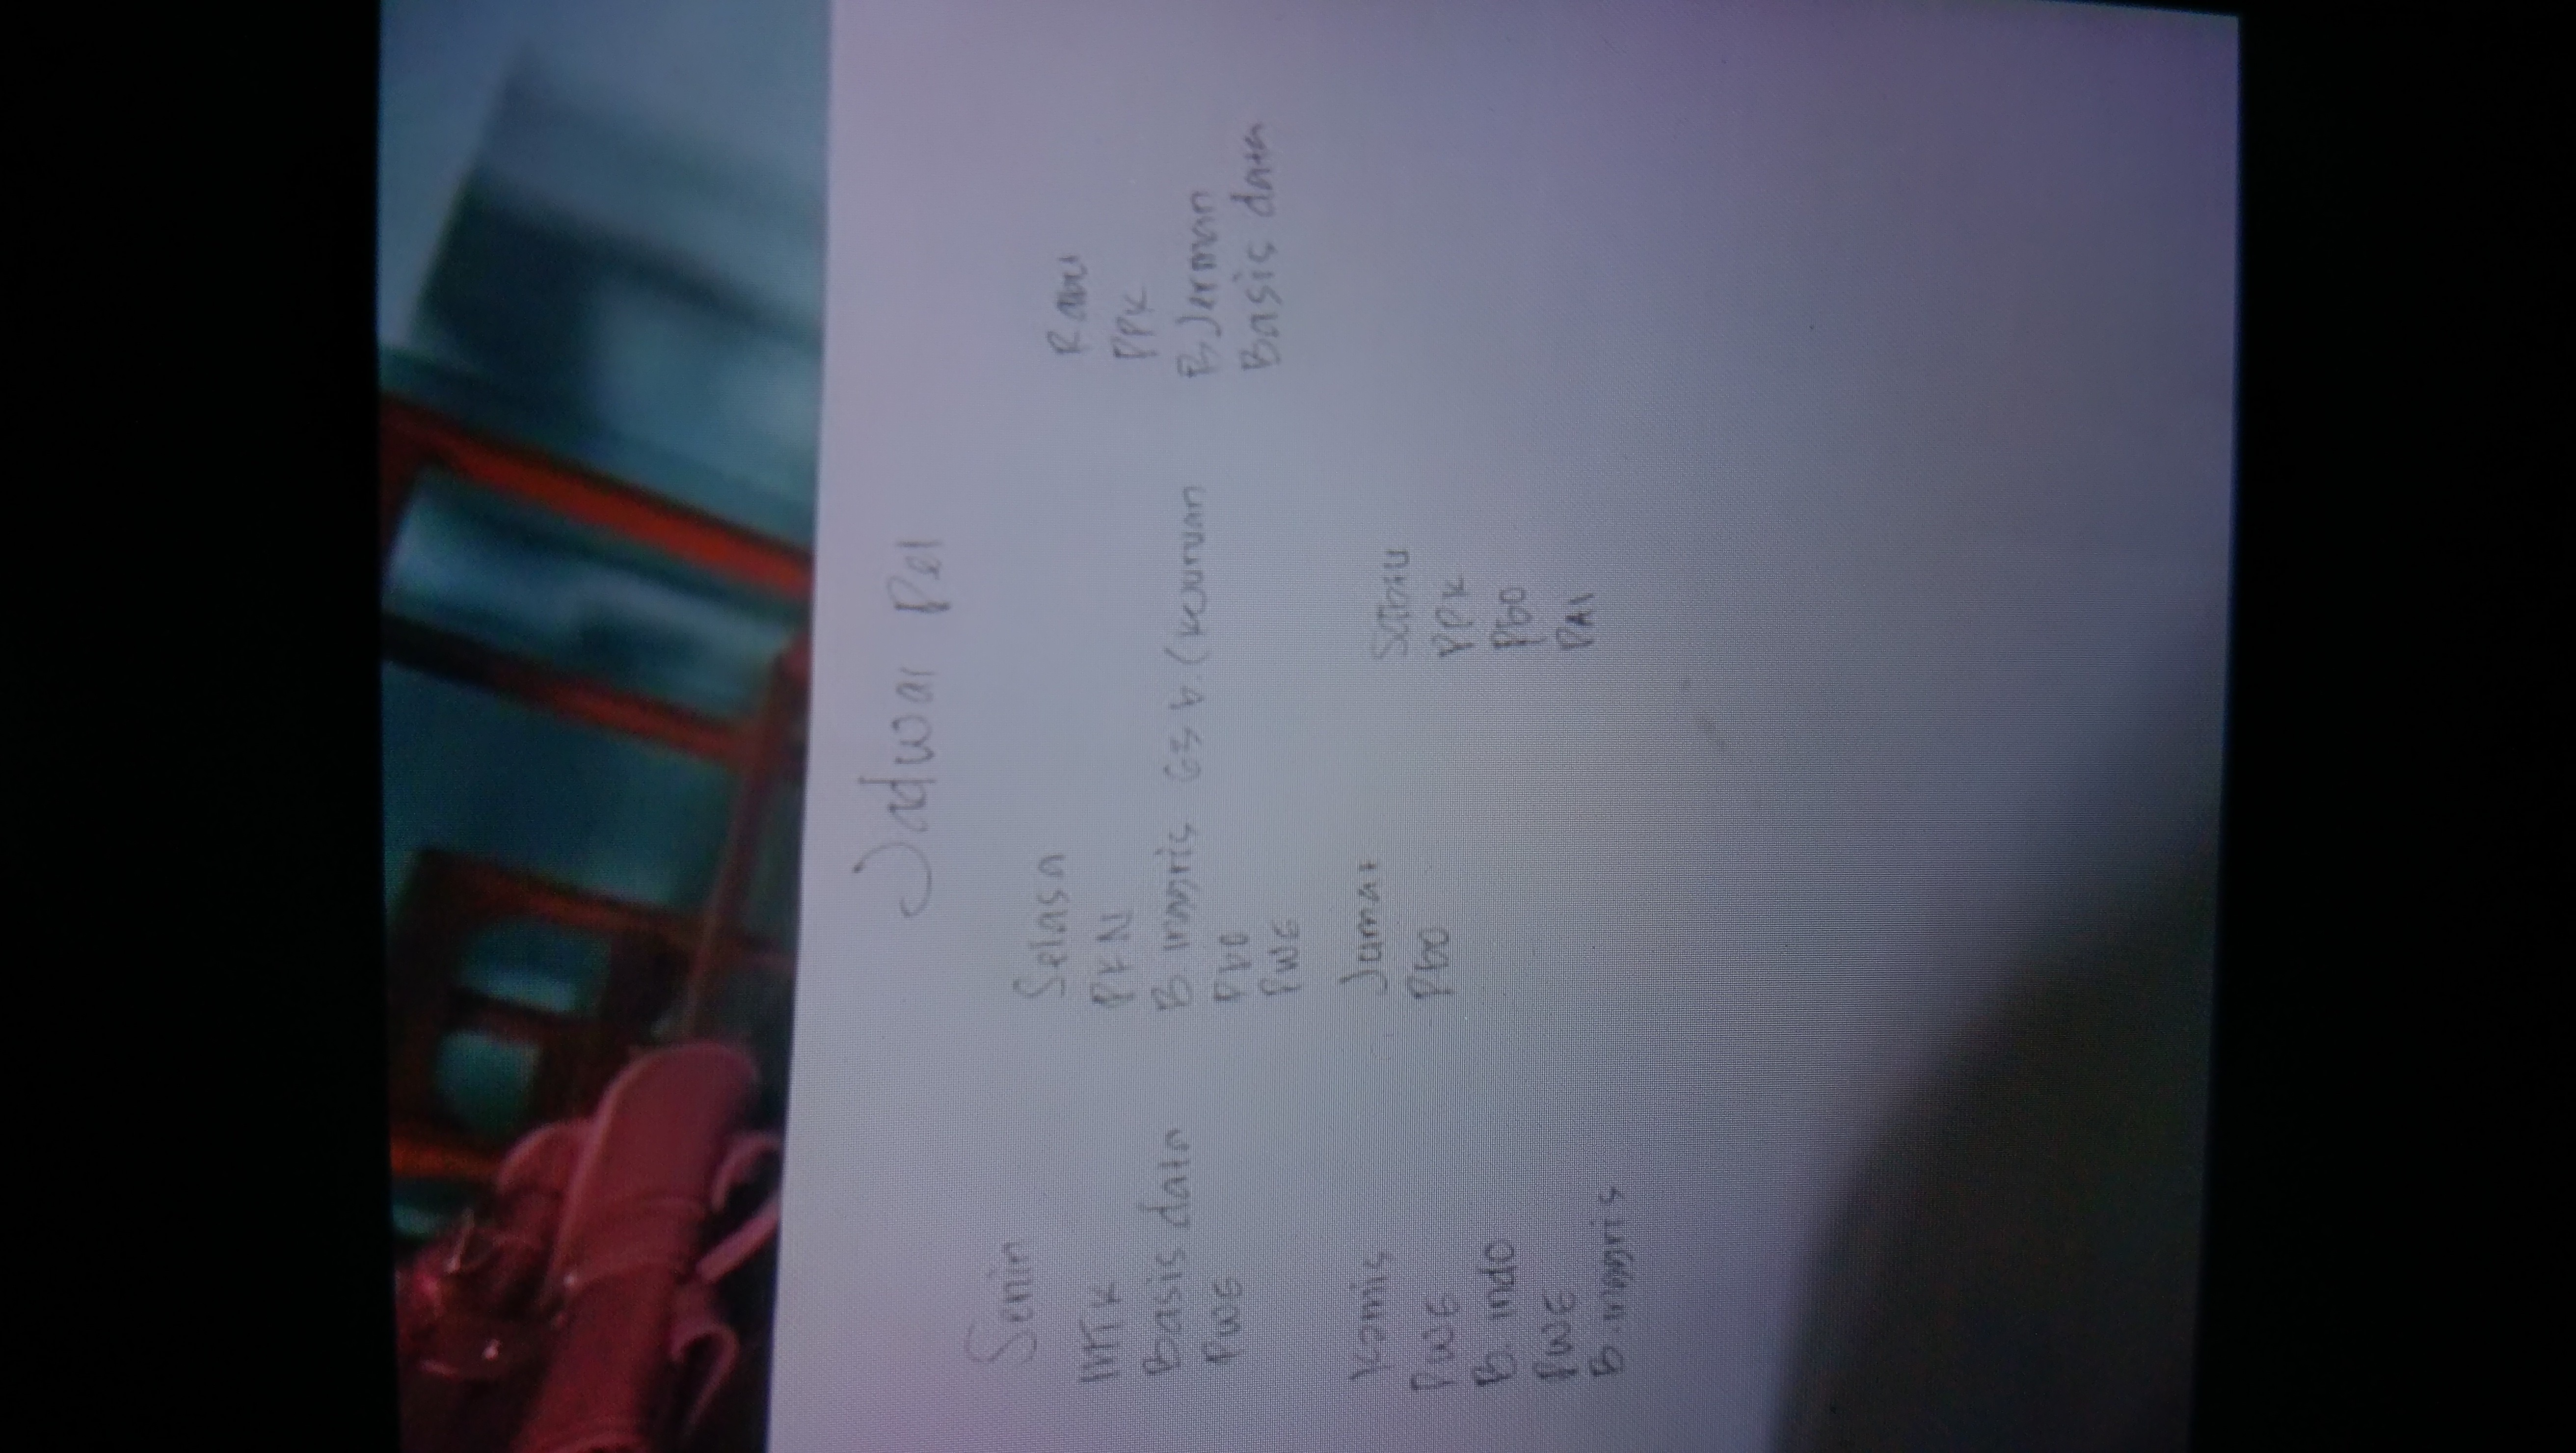 Jadwal Pel
Senin
MTK
Basis data
PWE
Selasa
PKN
B inggris
Pbo
PWE
Rabu
PPK
B Jerman
Basis data
Kamis
PWE
B. indo
PWE
B. inggris
Jumat
Pbo
Sabtu
PPK
Pbo
PAI